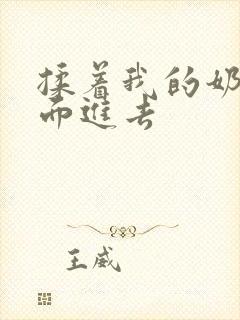 揉着我的奶
而进去
王威